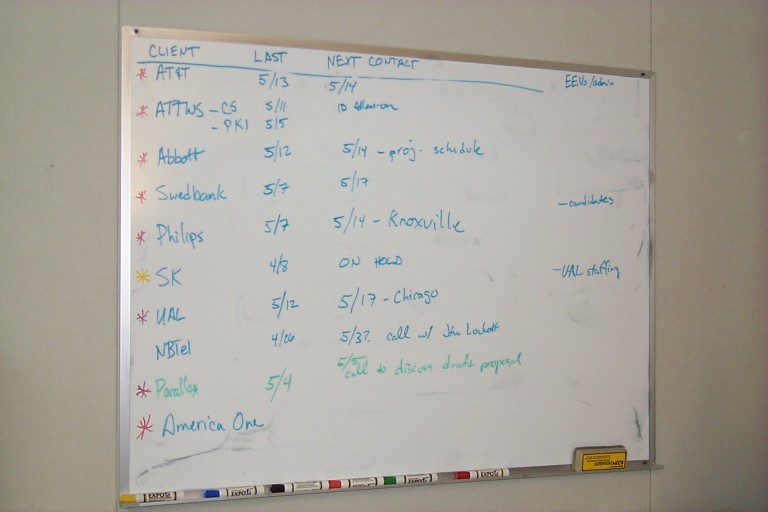 CLIENT LAST NEXT CONTACT
* AT&T 5/13 5/14 EEVs/admin
* ATTWS - CS 5/11 ID
- PKI 5/5
* Abbott 5/12 5/14 - proj. schedule
* Swedbank 5/7 5/17 - candidates
* Philips 5/7 5/14 - Knoxville
* SK 4/8 ON HOLD - UAL staffing
* UAL 5/12 5/17 - Chicago
NBTel 4/06 call w/ Jim Lockett
* Parallax 5/4 5/5 call to discuss draft proposal
* America One
EXPO EXPO EXPO EXPO EXPO EXPO